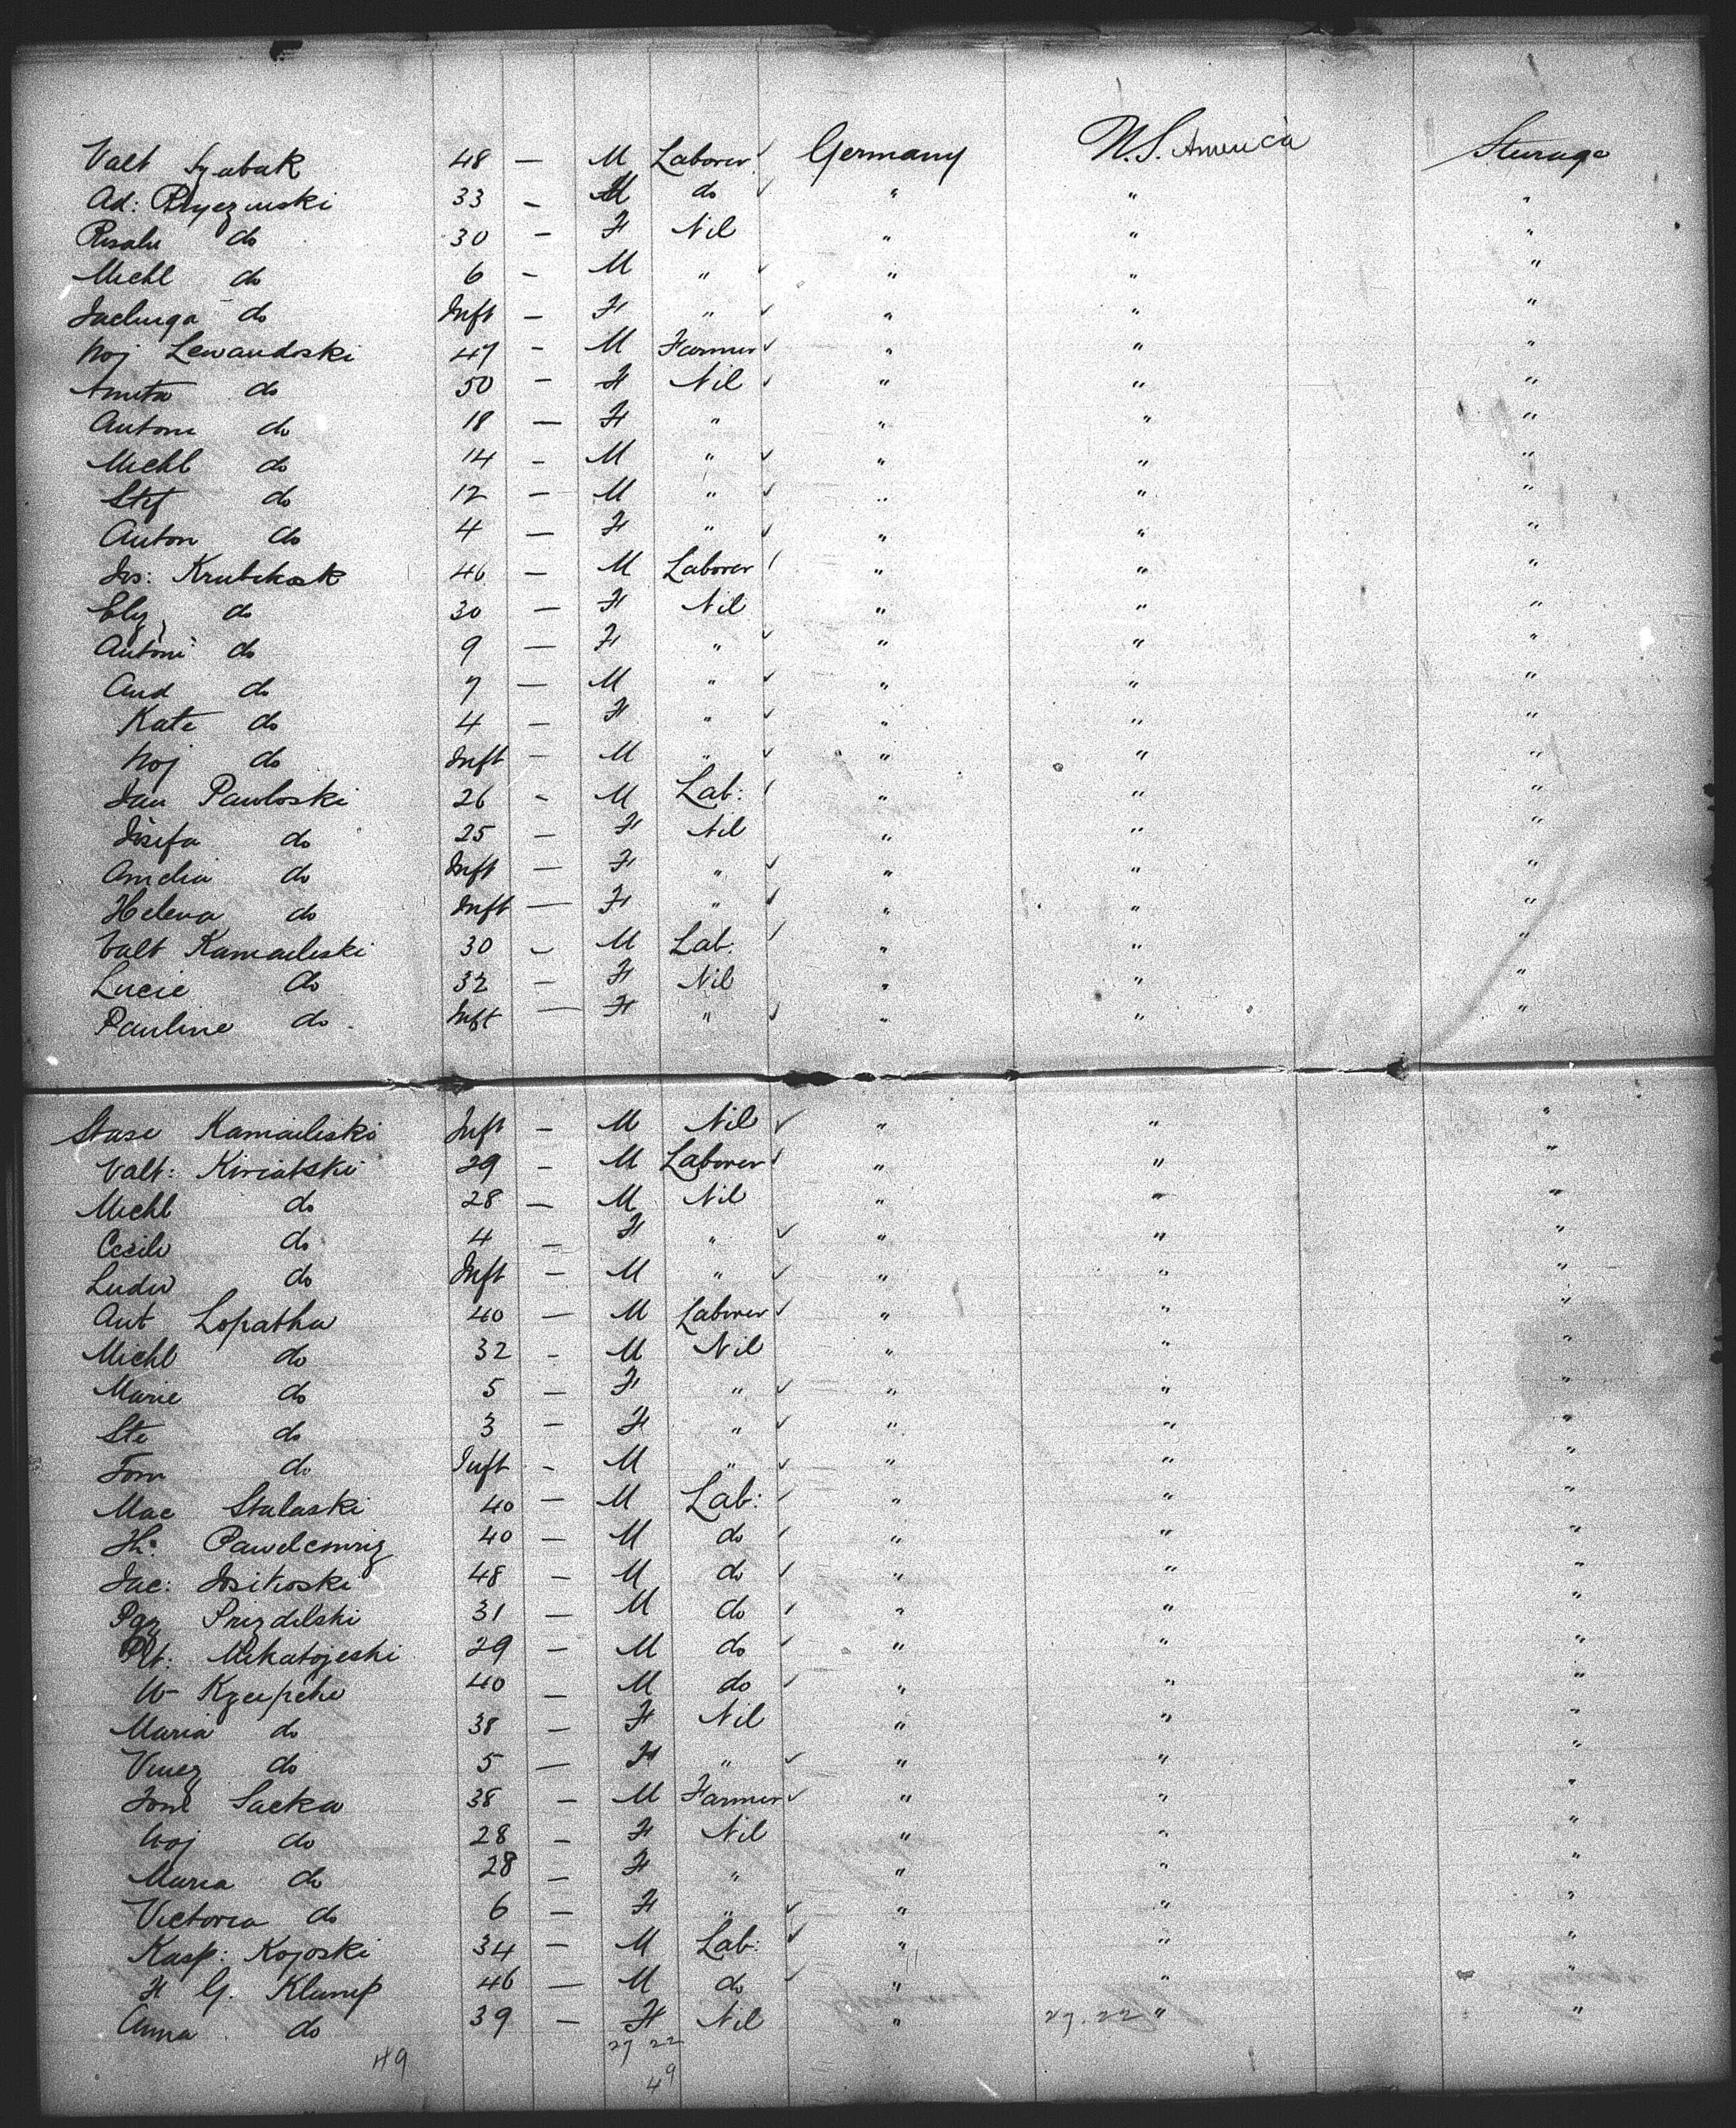 Valt Szabak 48 — M Laborer Germany U.S. America Steerage
Ad: Pryczinski 33 — M do " " "
Rosalie do 30 — F Nil " " "
Michl do 6 — M " " " "
Jadwiga do Inft — F " " " "
Woj Lewandoski 47 — M Farmer " " "
Aneta do 50 — F Nil " " "
Antoni do 18 — F " " " "
Michl do 14 — M " " " "
Stef do 12 — M " " " "
Anton do 4 — F " " " "
Jos: Krubikak 46 — M Laborer " " "
Elz do 30 — F Nil " " "
Antoni do 9 — F " " " "
And do 7 — M " " " "
Kate do 4 — F " " " "
Woj do Inft — M " " " "
Jan Pawloski 26 — M Lab: " " "
Josefa do 25 — F Nil " " "
Amelia do Inft — F " " " "
Helena do Inft — F " " " "
Valt Kamaileski 30 — M Lab. " " "
Lucie do 32 — F Nil " " "
Pauline do. Inft — F " " " "
Stase Kamaileski Inft — M Nil " " "
Valt: Kiriatski 29 — M Laborer " " "
Michl do 28 — M Nil " " "
Cecili do 4 — F " " " "
Ludw do Inft — M " " " "
Ant Lopatka 40 — M Laborer " " "
Michl do 32 — M Nil " " "
Marie do 5 — F " " " "
Ste do 3 — F " " " "
Tom do Inft — M " " " "
Mac Stalaski 40 — M Lab: " " "
Pawelcowiz 40 — M do " " "
Jac: Josikoski 48 — M do " " "
Prizdelski 31 — M do " " "
Mikatojeski 29 — M do " " "
W— Kzeipche 40 — M do " " "
Maria do 38 — F Nil " " "
Vincz do 5 — F " " " "
Sacka 38 — M Farmer " " "
Woj do 28 — F Nil " " "
Maria do 28 — F " " " "
Victoria do 6 — F " " " "
Kasp: Kojoski 34 — M Lab: " " "
H G. Klump 46 — M do " " "
Anna do 39 — F Nil " 27.22 " "
49 27 22
49